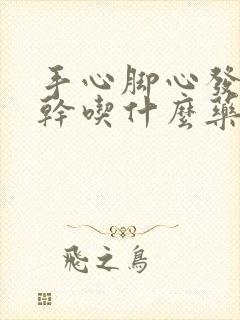 手心脚心發
幹喫什麼藥
飛之鳥